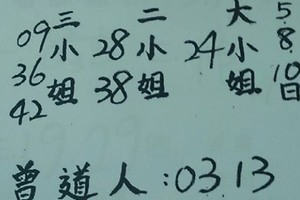 5
8
10
日
大小姐
24
二小姐
28
38
三小姐
09
36
42
曾道人:03.13